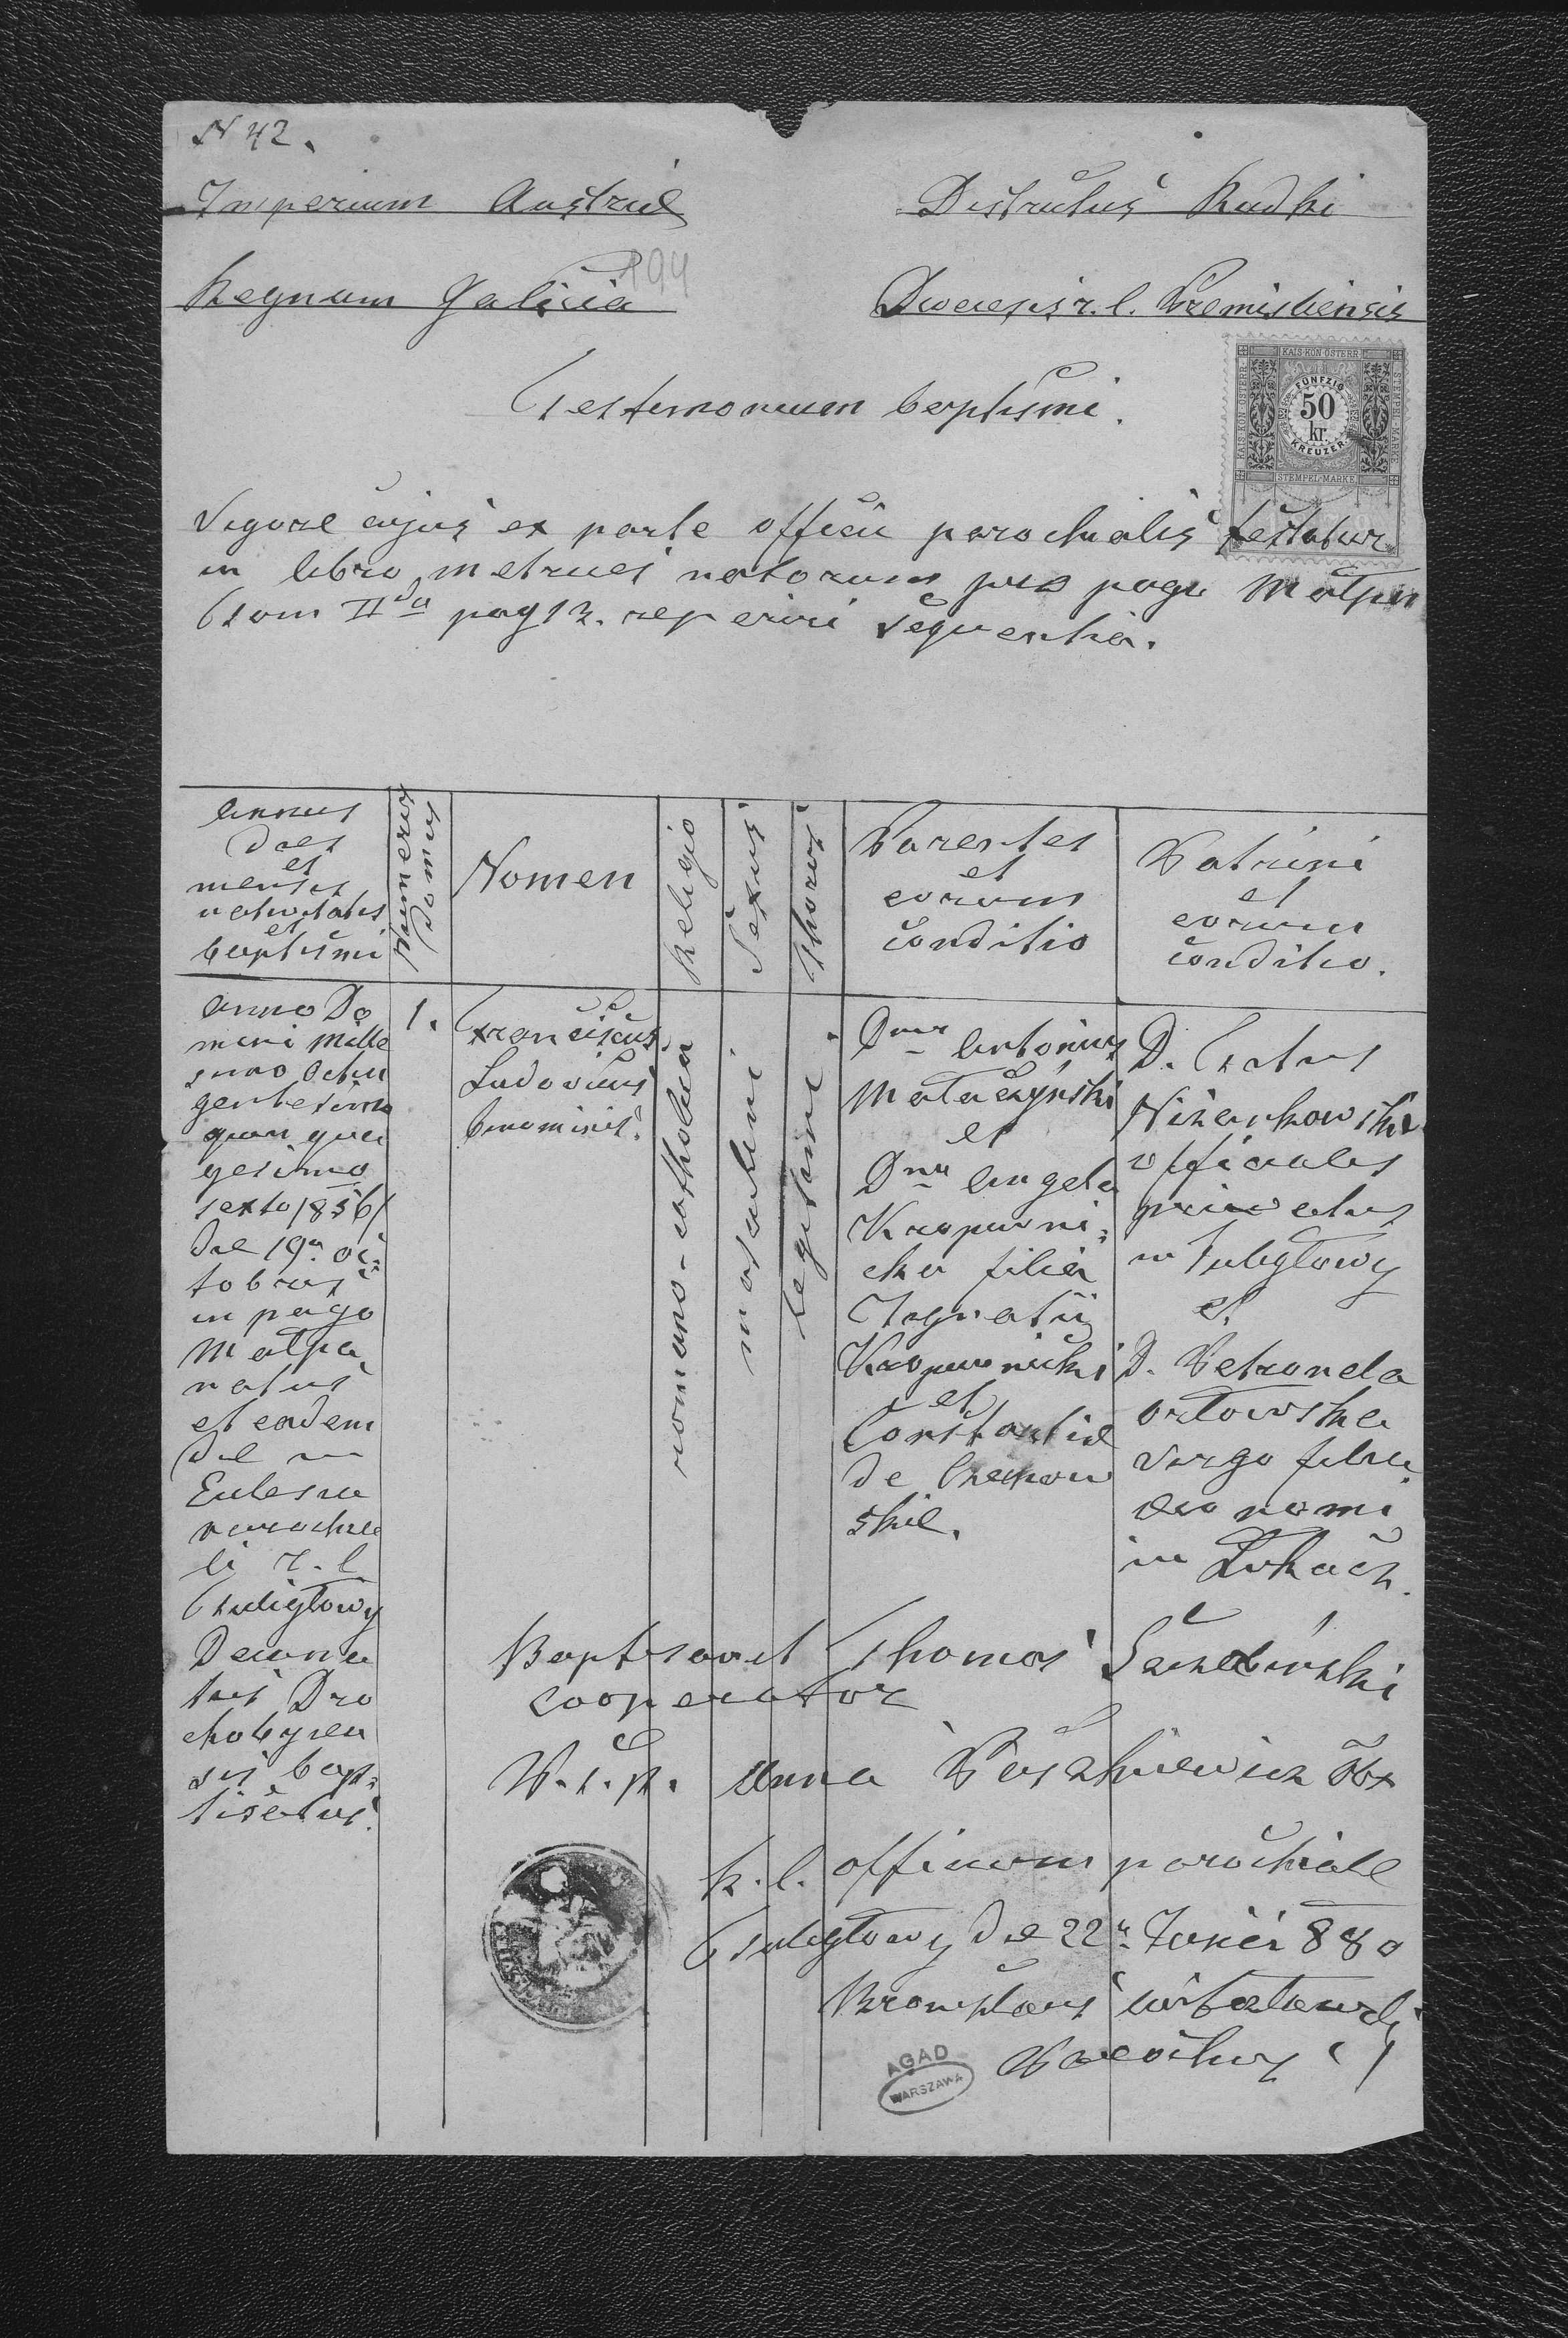 N 42.
Imperium Austriae
Districtus Rudki
194
Regnum Galicia
Dioecesis r. l. Premisliensis
KAIS. KÖN. ÖSTERR.
FÜNFZIG
50
kr.
KREUZER
STEMPEL-MARKE
Testimonium baptismi.
Vigore cujus ex parte officii parochialis testatur
in libro metrices natorum pro pago Małpa
Tom II da pag 12. reperiri sequentia.
Annus
dies
et
mensis
nativitatis
et
baptismi
Numerus
domus
Nomen
Religio
Sexus
Thorus
Parentes
et
eorum
conditio
Patrini
et
eorum
conditio.
anno Do
mini Mille
simo Octin
gentesimo
quinqua
gesimo
sexto 1856
die 19a oc=
tobris
in pago
Małpa
natus
et eadem
die in
Eclesia
parochia
li r. l.
Tuligłowy
Decana
tus Dro
hobycen
sis bap=
tisatus.
1.
Franciscus
Ludovicus
binominis.
romano-catholica
masculini
Legitimi
Dnus Antonius
Mataczyński
et
Dna Angela
Kropiwni=
cka filia
Ignatii
Kropiwnicki
et
Constantiae
de
skie.
D. Titus
Nizankowski
officialis
privatus
in Tuligłowy
et
D. Petronela
Orłowska
virgo filia
oeconomi
in
Baptisavit Thomas
cooperator
Anna Obx
R. l. officium parochiale
Tuligłowy die 22a Junii 880
Bronislaus
Parochus
AGAD
WARSZAWA